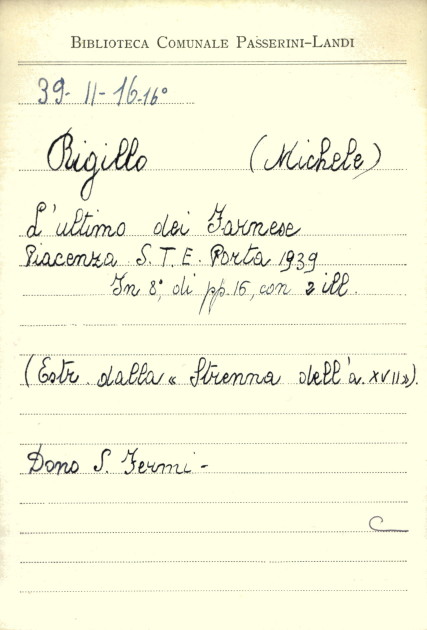 BIBLIOTECA COMUNALE PASSERINI-LANDI
39- II-16-16°
Rigillo (Michele)
L'ultimo dei Farnese
Piacenza S.T.E. Porta 1939
In 8°, di pp. 16, con 2 ill.
(Estr. dalla « Strenna dell'a. XVII»).
Dono S. Fermi -
C